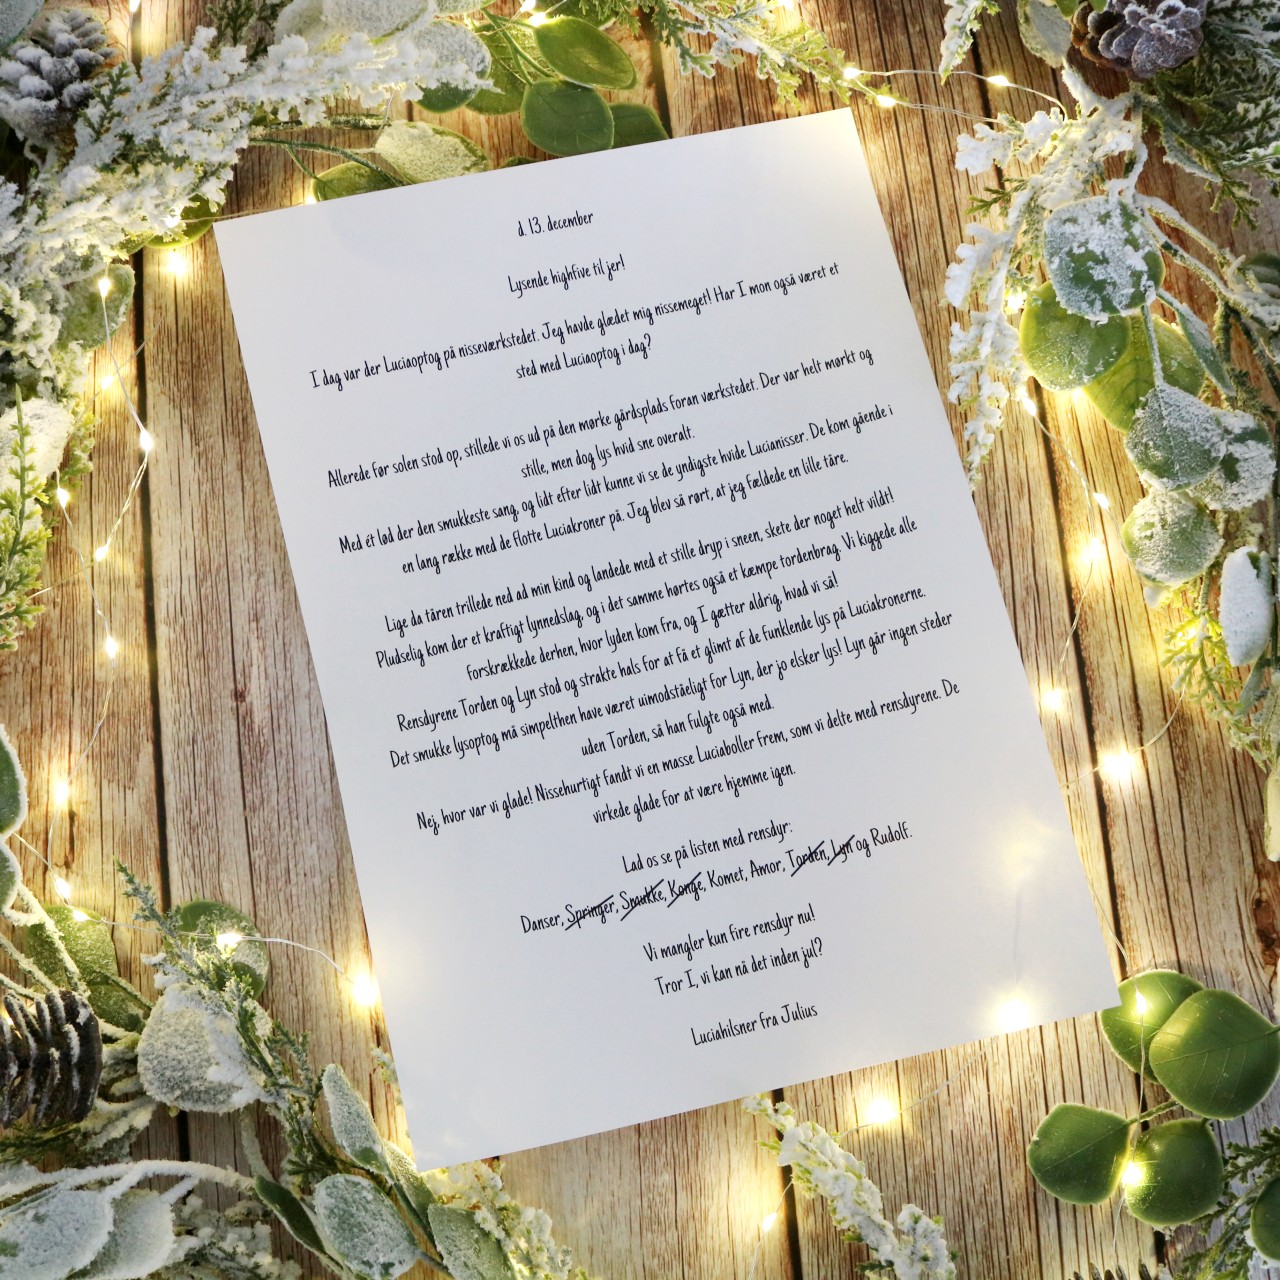 d. 13. december
Lysende highfive til jer!
I dag var der Luciaoptog på nisseværkstedet. Jeg havde glædet mig nissemeget! Har I mon også været et
sted med Luciaoptog i dag?
Allerede før solen stod op, stillede vi os ud på den mørke gårdsplads foran værkstedet. Der var helt mørkt og
stille, men dog lys hvid sne overalt.
Med ét lød der den smukkeste sang, og lidt efter lidt kunne vi se de yndigste hvide Lucianisser. De kom gående i
en lang række med de flotte Luciakroner på. Jeg blev så rørt, at jeg fældede en lille tåre.
Lige da tåren trillede ned ad min kind og landede med et stille dryp i sneen, skete der noget helt vildt!
Pludselig kom der et kraftigt lynnedslag, og i det samme hørtes også et kæmpe tordenbrag. Vi kiggede alle
forskrækkede derhen, hvor lyden kom fra, og I gætter aldrig, hvad vi så!
Rensdyrene Torden og Lyn stod og strakte hals for at få et glimt af de funklende lys på Luciakronerne.
Det smukke lysoptog må simpelthen have været uimodståeligt for Lyn, der jo elsker lys! Lyn går ingen steder
uden Torden, så han fulgte også med.
Nej, hvor var vi glade! Nissehurtigt fandt vi en masse Luciaboller frem, som vi delte med rensdyrene. De
virkede glade for at være hjemme igen.
Lad os se på listen med rensdyr:
Danser, Springer, Smukke, Konge, Komet, Amor, Torden, Lyn og Rudolf.
Vi mangler kun fire rensdyr nu!
Tror I, vi kan nå det inden jul?
Luciahilsner fra Julius